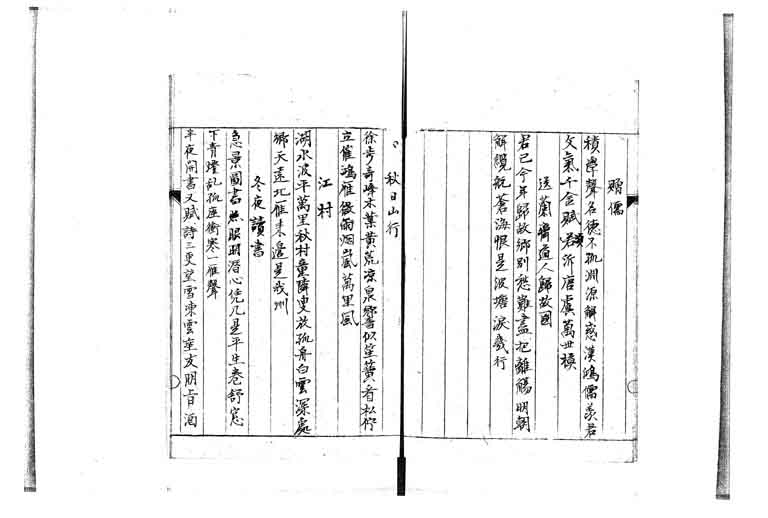 贈儒
積學聲名德不孤淵源解惑漢鴻儒羨君
文氣千金賦須君沂唐虞萬世模
送蘭齋道人歸故國
君已今年歸故鄉別愁難盡把離觴明朝
解纜航蒼海恨是波塘淚歲行
秋日山行
徐步奇峰木葉黃荒涼泉響似笙簧看松作
立催鴻雁微雨烟嵐萬里風
江村
湖水波平萬里秋村童隣叟放孤舟白雲深處
鄉天遠北雁來邊是我州
冬夜讀書
急景圖書照眼明潛心凭几是平生卷舒窓
下青燈乱孤座衝寒一雁聲
半夜開書又賦詩三更望雪凍雲垂友朋旨酒